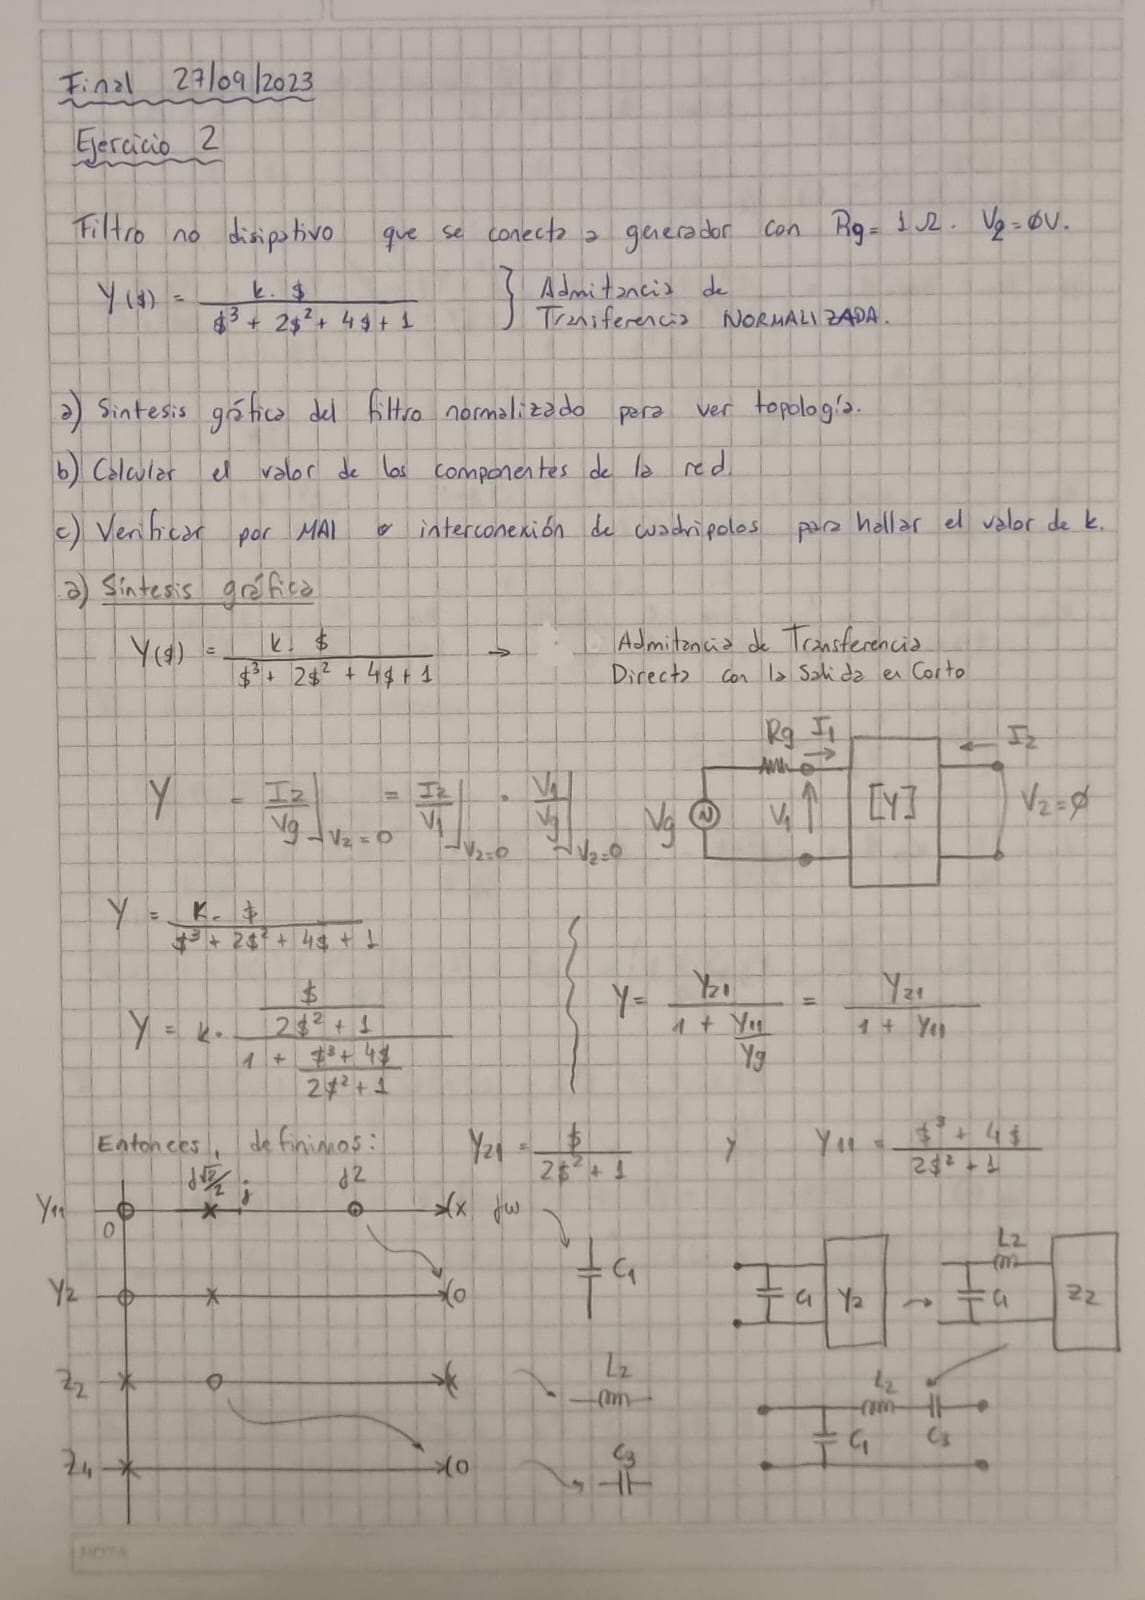 Final 27/09/2023
Ejercicio 2
Filtro no disipativo que se conecta a generador con Rg = 1Ω. V2 = ØV.
Y($) = k. $ / ($³ + 2$² + 4$ + 1) } Admitancia de Transferencia NORMALIZADA.
a) Sintesis gráfica del filtro normalizado para ver topología.
b) Calcular el valor de los componentes de la red.
c) Verificar por MAI o interconexión de cuadripolos para hallar el valor de k.
a) Síntesis gráfica
Y($) = k. $ / ($³ + 2$² + 4$ + 1) → Admitancia de Transferencia
Directa con la Salida en Corto
Rg I1 I2
Y = I2/Vg |V2=0 = I2/V1 |V2=0 . V1/Vg |V2=0
Vg V1 [Y] V2=Ø
Y = k. $ / ($³ + 2$² + 4$ + 1)
Y = k. ($ / (2$² + 1)) / (1 + ($³ + 4$) / (2$² + 1))
Y = Y21 / (1 + Y11/Yg) = Y21 / (1 + Y11)
Entonces, definimos: Y21 = $ / (2$² + 1) y Y11 = ($³ + 4$) / (2$² + 1)
j√2/2 j j2
Y11 0 jω
C1
C1 Y2 → L2 C1 Z2
Y2
Z2 L2
L2 C1 C3
Z4 C3
NOTA